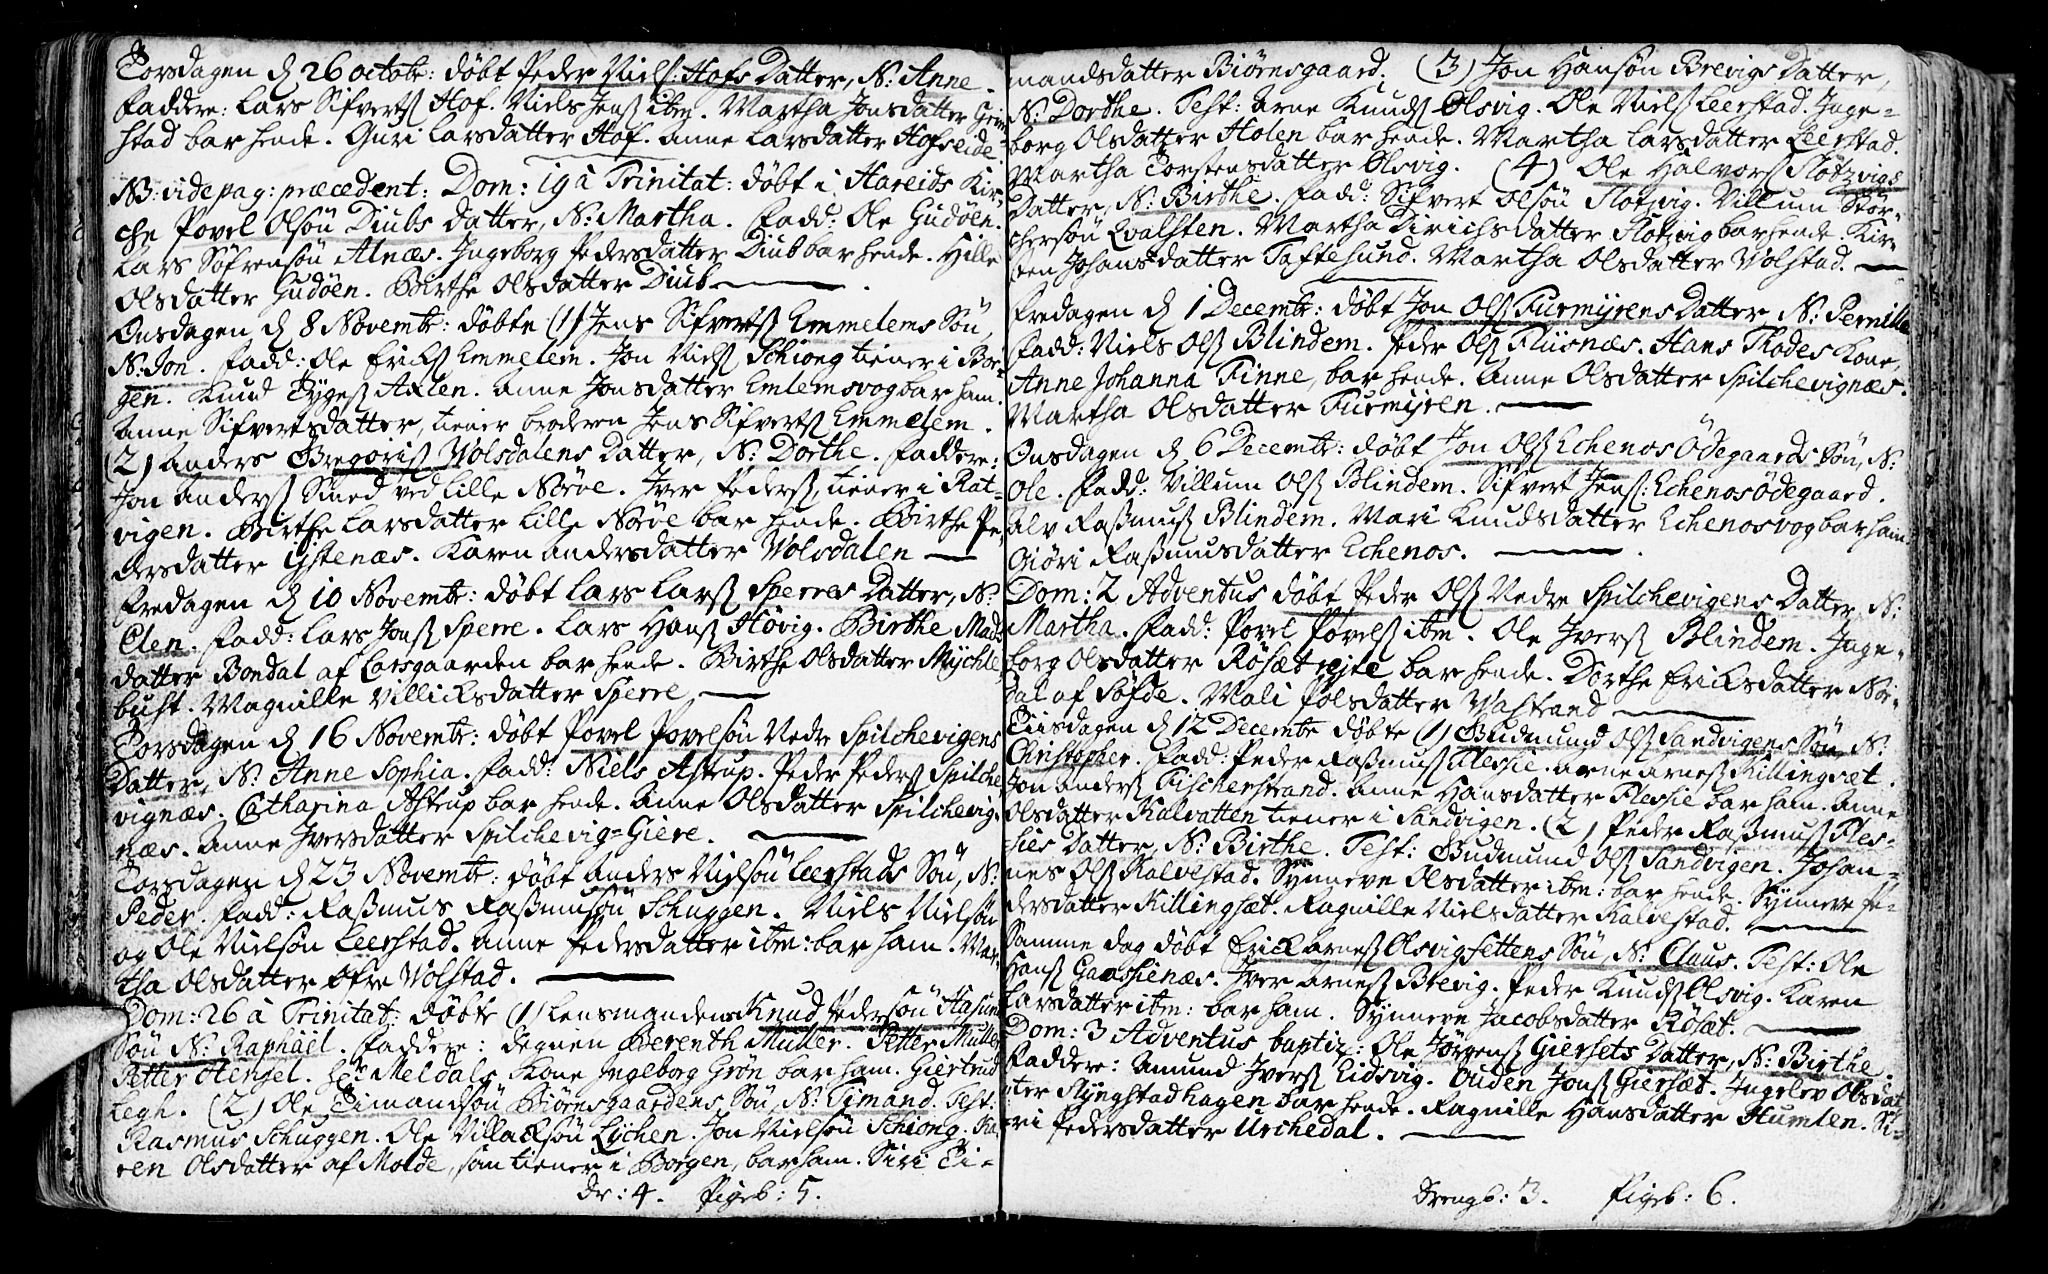 Torsdagen d 26 octobr: döbt Peder Niels: Hofs Datter, N: Anne.
Faddere: Lars Sifverts Hof. Niels Jens ibm. Martha Jonsdatter Grim-
stad bar hende. Guri Larsdatter Hof. Anne Larsdatter Hofseide.
NB: vide pag: præcedent: Dom: 19 à Trinitat: döbt i Hareids Kir-
che Povel Olsön Diubs Datter, N: Martha. Fadd: Ole Gudöen.
Lars Söfrensön Alnæs. Ingeborg Pedersdatter Diub bar hende. Hille
Olsdatter Gudöen. Birthe Olsdatter Diub.
Onsdagen d 8 Novembr: döbte (1) Jens Sifverts Emmelems Sön,
N: Jon. Fadd: Ole Ericks Emmelem. Jon Niels Schiong tiener i Bor-
gen. Knud Tyges Axlen. Anne Jonsdatter Emlemsvog bar ham.
Anne Sifvertsdatter, tiener broderen Jens Sifverts Emmelem.
(2) Anders Bregoris Wolsdalens Datter, N: Dorthe. Faddere:
Jon Anders Smed ved Lille Nörve. Iver Peders, tiener i Rat-
vigen. Birthe Larsdatter Lille Nörve bar hende. Birthe Pe-
dersdatter Ijstenæs. Karen Andersdatter Wolsdalen
Fredagen d 10 Novembr: döbt Lars Lars Sperres Datter, N:
Elen. Fadd: Lars Jons Sperre. Lars Hans Hövig. Birthe Mads-
datter Bondal af Larsgaarden bar hende. Birthe Olsdatter Mychle-
bust. Magnille Villicksdatter Sperre,
Torsdagen d 16 Novembr: döbt Povel Povelsön Nedre Spilchevigens
Datter, N: Anne Sophia. Fadd: Niels Astrup. Peder Peders Spilche
vignæs. Catharina Astrup bar hende. Anne Olsdatter Spilchevig-
næs. Anne Iversdatter Spilchevig=Giere.
Torsdagen d 23 Novembr: döbt Anders Nielsön Leerstads Sön, N:
Peder. Fadd: Rasmus Rasmusön Schuggen. Niels Nielsön
og Ole Nielsön Leerstad. Anne Pedersdatter ibm: bar ham. Mar-
tha Olsdatter öfre Wolstad.
Dom: 26 à Trinitat: döbte (1) Lensmandens Knud Pedersön Hasund
Sön N: Raphaël. Faddere: Degnen Berenth Muller. Petter Muller
Petter Hengel. Hr: Meldals Kone Ingeborg Grön bar ham. Giertrud
Legh. (2) Ole Timandsön Biörnsgaardens Sön, N: Timand. Test:
Rasmus Schuggen. Ole Villacksön Lychen. Jon Nielsön Schiong. Ka-
ren Olsdatter af Molde, som tiener i Borgen, bar ham. Siri Ti-
dr: 4. Pigeb: 5.
mandsdatter Biörnsgaard. (3) Jon Hansön Brevigs Datter,
N: Dorthe. Test: Arne Knuds Olsvig. Ole Niels Leerstad. Inge-
borg Olsdatter Holen bar hende. Martha Larsdatter Leerstad.
Martha Torstensdatter Olsvig. (4) Ole Halvors Flotzvigs
Datter, N: Birthe. Fadd: Sifvert Olsön Flotzvig. Villum Stör-
chersön Qvalsten. Martha Dirichsdatter Flotzvig bar hende. Kir-
sten Johansdatter Taftesund. Martha Olsdatter Wolstad.
Fredagen d 1 Decembr: döbt Jon Ols Furmyrens Datter N: Pernille
Fadd: Niels Ols Blindem. Peder Ols Fliisnæs. Hans Thodes Kone,
Anne Johanna Finne, bar hende. Anne Olsdatter Spilchevignæs.
Martha Olsdatter Furmyren.
Onsdagen d 6 Decembr: döbt Jon Ols Echenos Ödegaards Sön, N:
Ole. Fadd: Villum Ols Blindem. Sifvert Jens: Echenos ödegaard.
Alv Rasmus Blindem. Mari Knudsdatter Echenosvog bar ham.
Giöri Rasmusdatter Echenos.
Dom: 2 Adventus döbt Peder Ols Nedre Spilchevigens Datter, N:
Martha. Fadd: Povel Povels ibm. Ole Ivers Blindem. Inge-
borg Olsdatter Rösætrejte bar hende. Dorthe Ericksdatter Nör-
dal af Söfde. Mali Polsdatter Wastrand
Tiisdagen d 12 Decembr döbte (1) Gudmund Ols Sandvigens Sön N:
Christopher. Fadd: Peder Rasmus Flessie. Arne Arnes Killingsæt.
Jon Anders Fischerstrand. Anne Hansdatter Flessie bar ham. Anne
Olsdatter Kalvatten tiener i Sandvigen. (2) Peder Rasmus Fles-
sies Datter, N: Birthe. Test: Gudmund Ols Sandvigen. Johan-
nes Ols Kalvestad. Synneve Olsdatter ibm: bar hende. Synneve Pe-
dersdatter Killingsæt. Ragnille Nielsdatter Kalvestad.
Samme dag döbt Erick Arnes Olsvigsettens Sön, N: Claus. Test: Ole
Hans Gaassienæs. Iver Arnes Brevig. Peder Knuds Olsvig. Karen
Larsdatter ibm: bar ham. Synneve Jacobsdatter Rösæt.
Dom: 3 Adventus baptiz: Ole Jörgens Giersets Datter, N: Birthe.
Faddere: Amund Ivers Eidsvig. Ouden Jons Giersæt. Ingelev Olsdat
ter Flyngstadhagen bar hende. Ragnille Hansdatter Humlen. Si-
ri Pedersdatter Urchedal.
Drengb: 3. Pigeb: 6.